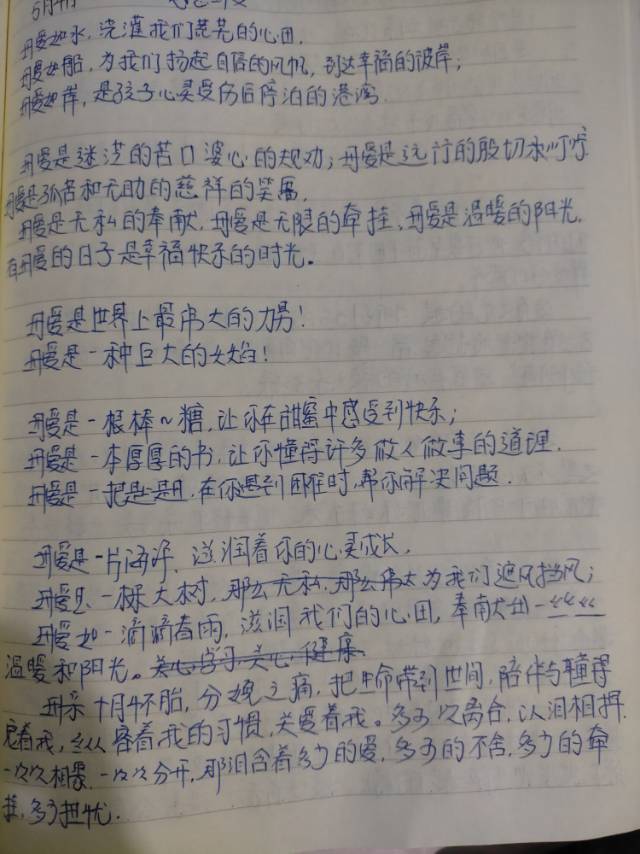 5月
母爱如水，浇灌我们荒芜的心田，
母爱如船，为我们扬起自信的风帆，到达幸福的彼岸；
母爱如岸，是孩子心灵受伤后停泊的港湾
母爱是迷茫的苦口婆心的规劝；母爱是远行的殷切求叮咛
母爱是孤苦和无助的慈祥的笑
母爱是无私的奉献，母爱是无限的牵挂，母爱是温暖的阳光，
有母爱的日子是幸福快乐的时光。
母爱是世界上最伟大的力量！
母爱是一种巨大的火焰！
母爱是一根棒～糖，让你在甜蜜中感受到快乐；
母爱是一本厚厚的书，让你懂得许多做人做事的道理．
母爱是一把，在你遇到困难时，帮你解决问题．
母爱是一片海洋，滋润着你的心灵成长，
母爱是一棵大树，那么无私，那么伟大为我们遮风挡风；
母爱如一滴滴春雨，滋润我们的心田，奉献出一丝丝
温暖和阳光。关心学习关心健康
母亲十月怀胎，分娩之痛，把生命带到世间，陪伴与
着我，纵容着我的习惯，关爱着我。多少次离合，以泪相拥
一次次相聚，一次次分开，那泪含着多少的爱，多少的不舍，多少的牵
挂，多少担忧．